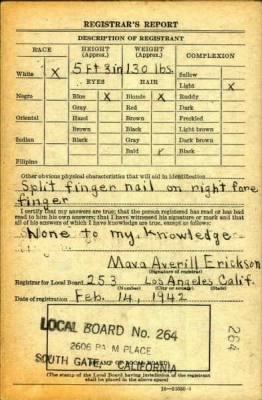 REGISTRAR'S REPORT
DESCRIPTION OF REGISTRANT
RACE HEIGHT (Approx.) WEIGHT (Approx.) COMPLEXION
White X 5 ft 3 in 130 lbs. Sallow
EYES HAIR Light X
Negro Blue X Blonde X Ruddy
Gray Red Dark
Oriental Hazel Brown Freckled
Brown Black Light brown
Indian Black Gray Dark brown
Bald Black
Filipino
Other obvious physical characteristics that will aid in identification
Split finger nail on right fore
finger
I certify that my answers are true; that the person registered has read or has had
read to him his own answers; that I have witnessed his signature or mark and that
all of his answers of which I have knowledge are true, except as follows:
None to my knowledge
Mava Averill Erickson
(Signature of registrar)
Registrar for Local Board 253 Los Angeles Calif.
(Number) (City or county) (State)
Date of registration Feb. 14, 1942
LOCAL BOARD No. 264
2606 PALM PLACE
SOUTH GATE, CALIFORNIA
264
(The stamp of the Local Board having jurisdiction of the registrant
shall be placed in the above space)